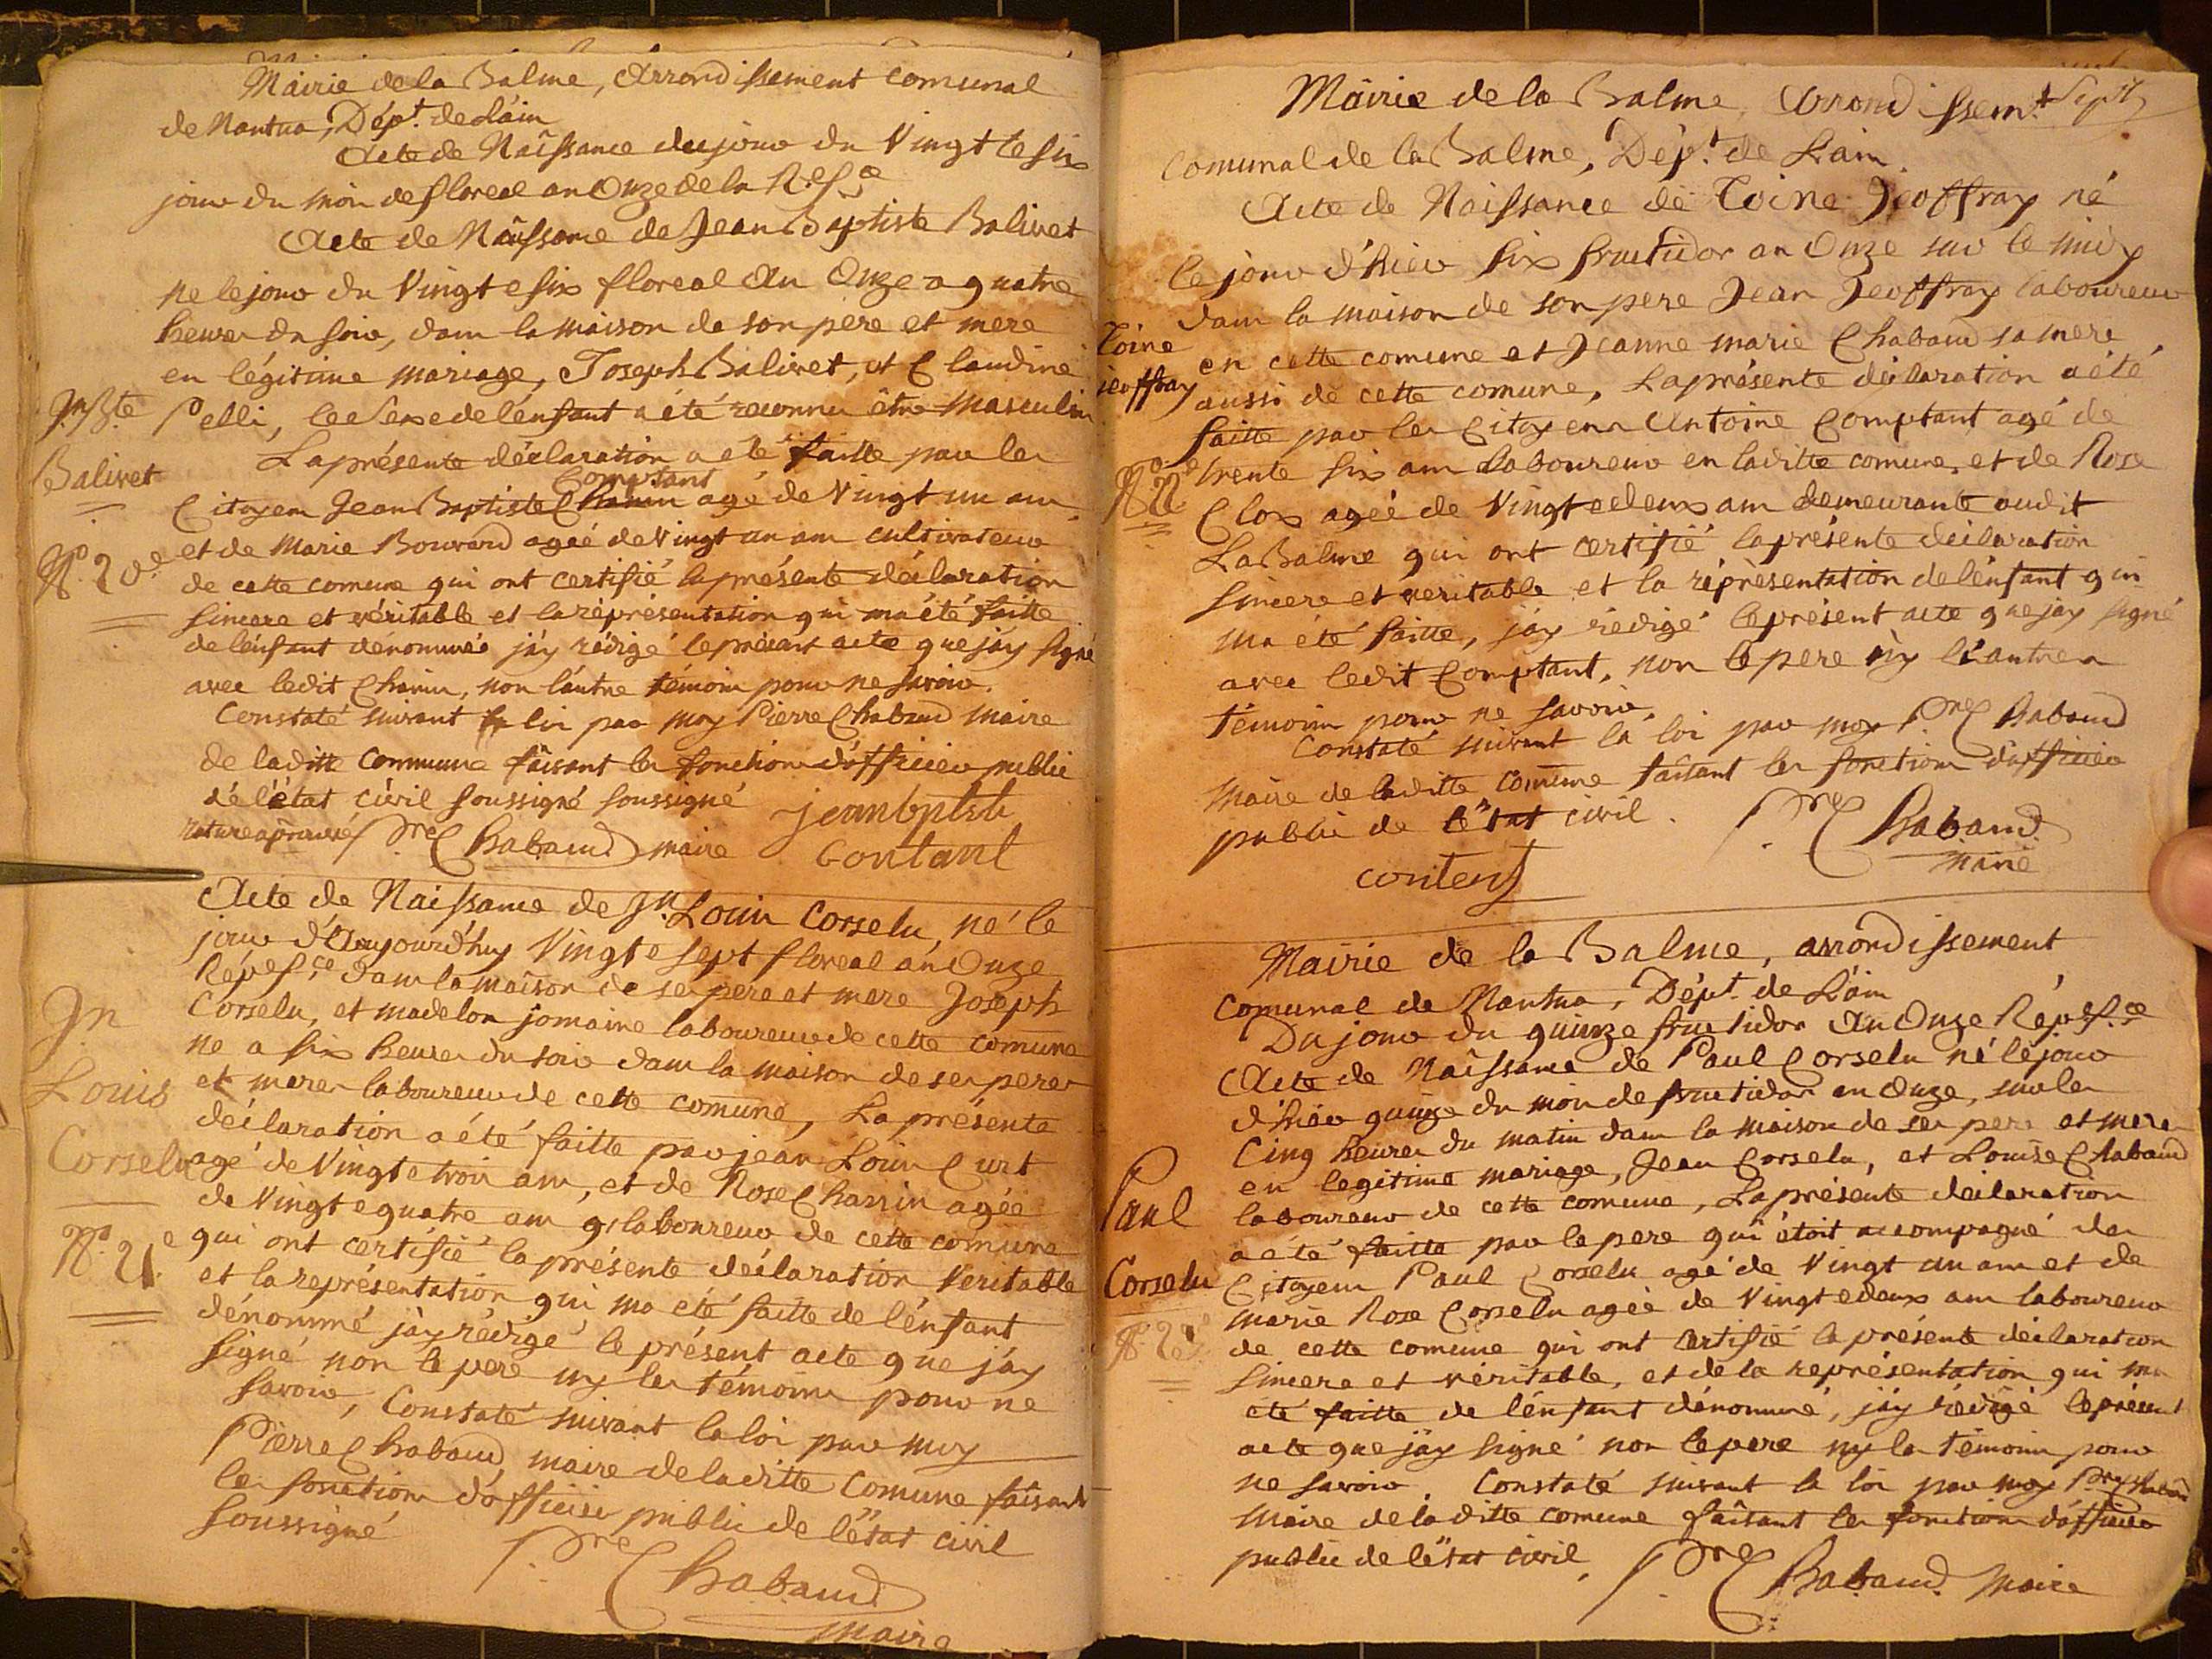 Mairie de la Balme, Arrondissement Comunal
de Nantua, Dépt. de L'ain
Acte de Naissance du jour du Vingt le six
jour du moi de floreal an Onze de la
Acte de Naissance de Jean Baptiste Balivet
ne le jour du Vingt e six floreal An Onze a quatre
heures du soir, dans la maison de son pere et mere
en légitime mariage, Joseph Balivet, et Claudine
Jn. Bte
Pelli, le sexe de l'enfant a été reconnu être masculin
La présente déclaration a été faitte par les
Balivet
Comptant
Citoyens Jean Baptiste agé de Vingt un ans
et de Marie Bouvard agée de Vingt un ans cultivateur
No. 20e
de cette comune qui ont certifié la présente déclaration
sincere et véritable et la réprésentation qui ma été faitte
de l'enfant dénommés j'ay rédigé le présent acte que j'ay signé
avec ledit Charin, non l'autre témoin pour ne savoir.
Constaté suivant la loi par moy Pierre Chabaud maire
de laditte Commune faisant les fonctions d'officier public
de l'état civil soussigné soussigné
jean bptste
Pre Chabaud maire
Contant
Acte de Naissance de Jn. Louis Corselu, né le
jour d'Aujourd'huy Vingt e sept floreal an Onze
dans la maison de ses pere et mere Joseph
Corselu, et madelon jomaine laboureur de cette comune
Jn
ne a six heures du soir dans la maison de ses peres
Louis
et meres laboureur de cette comune, La présente
déclaration a été faitte par jean Louis Curt
Corselu
agé de Vingt e trois ans, et de Rose Charrin agée
de Vingt e quatre ans laboureur de cette comune
No. 21e
qui ont certifié la présente déclaration Veritable
et la représentation qui ma été faitte de l'énfant
dénommé j'ay rédigé le présent acte que j'ay
signé non le pere ny les témoins pour ne
savoir, Constaté suivant la loi par moy
Pierre Chabaud maire de laditte Comune faisant
les fonctions d'officier public de l'état civil
soussigné
Pre Chabaud
maire
Mairie de la Balme, Arrondissemt.
Comunal de la Balme, Dépt. de L'ain
Acte de Naissance de Toine Jeoffray né
le jour d'hier six fructidor an Onze sur le midy
dans la maison de son pere Jean Jeoffray laboureur
Toine
en cette comune et Jeanne marie Chabaud sa mere
jeoffray
aussi de cette comune, La présente déclaration a été
faitte par les Citoyens Antoine Comptant agé de
No. 22e
trente six ans laboureur en laditte comune, et de Rose
Clox agée de Vingt e deux ans demeurante audit
La Balme qui ont certifié la présente déclaration
sincere et veritable et la réprésentation de l'énfant qui
ma été faitte, j'ay rédigé le présent acte que j'ay signé
avec ledit Comptant, non le pere ny l'autres
témoins pour ne savoir.
Constaté suivant la loi par moy Pre Chabaud
Maire de laditte comune faisant les fonctions d'officier
public de l'état civil.
Pre Chabaud
Maire
contens
Mairie de la Balme, arrondissement
Comunal de Nantua, Dépt. de L'ain
Du jour du quinze fructidor An Onze
Acte de Naissance de Paul Corselu né le jour
d'hier quinze du moi de fructidor an Onze, sur les
Cinq heures du matin dans la maison de ses pere et mere
en legitime mariage, Jean Corselu, et Louise Chabaud
Paul
laboureur de cette comune, La présente déclaration
a été faitte par le pere qui étoit accompagné des
Corselu
Citoyens Paul Corselu agé de Vingt un ans et de
Marie Rose Corselu agée de Vingt e deux ans laboureur
de cette comune qui ont certifié la présente déclaration
sincere et véritable, et de la représentation qui ma
été faitte de l'énfant dénommé, j'ay rédigé le présent
acte que j'ay signé non le pere ny les témoins pour
ne savoir. Constaté suivant la loi par moy Pre Chabaud
Maire de laditte comune faisant les fonctions d'officier
public de l'état civil,
Pre Chabaud Maire